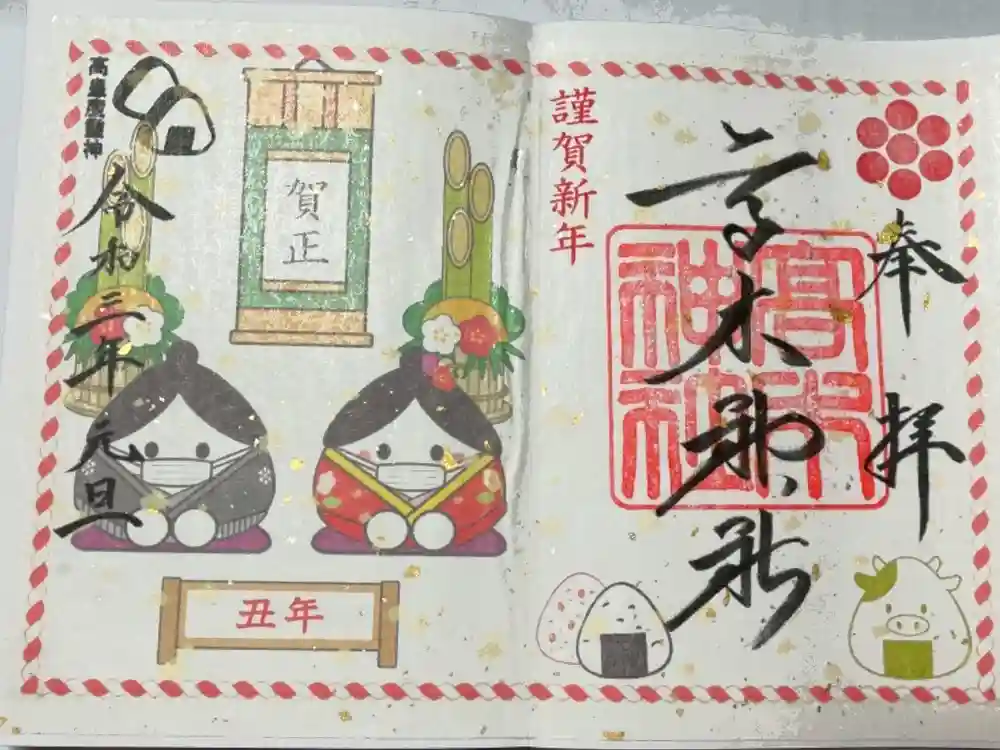 奉拝
高木神社
高木
神社
謹賀新年
賀正
高皇産靈神
令和三年元旦
丑年